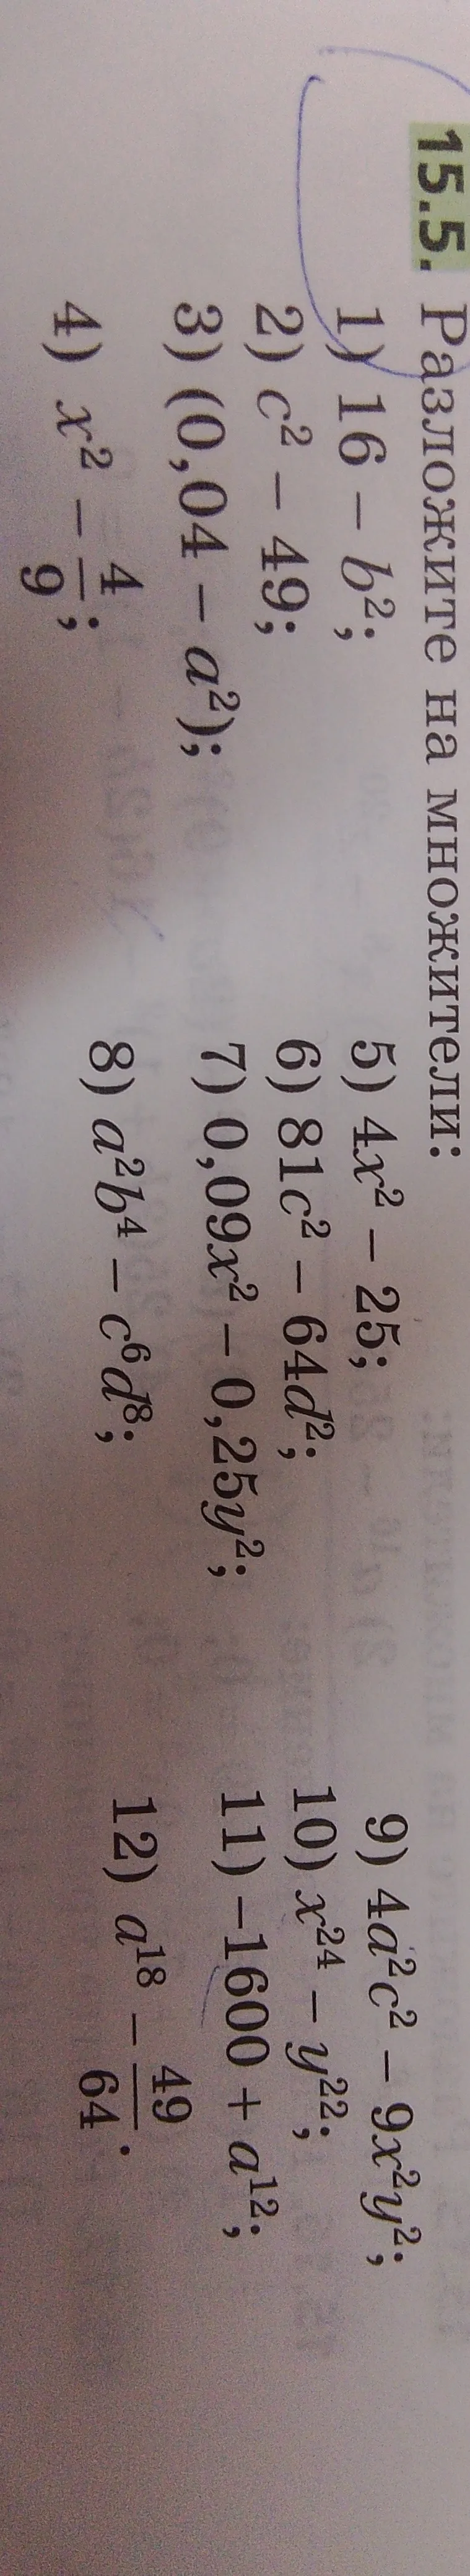 15.5. Разложите на множители:
1) 16 − b²;
2) c² − 49;
3) (0,04 − a²);
4) x² − 4/9;
5) 4x² − 25;
6) 81c² − 64d²;
7) 0,09x² − 0,25y²;
8) a²b⁴ − c⁶d⁸;
9) 4a²c² − 9x²y²;
10) x²⁴ − y²²;
11) −1600 + a¹²;
12) a¹⁸ − 49/64.